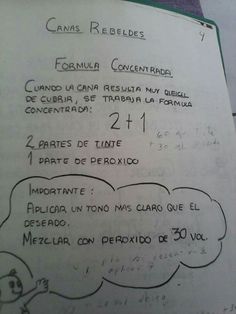 CANAS REBELDES
4
FORMULA CONCENTRADA
CUANDO LA CANA RESULTA MUY DIFICIL
DE CUBRIR, SE TRABAJA LA FORMULA
CONCENTRADA:
2+1
2 PARTES DE TINTE
1 PARTE DE PEROXIDO
IMPORTANTE:
APLICAR UN TONO MAS CLARO QUE EL
DESEADO.
MEZCLAR CON PEROXIDO DE 30 VOL.